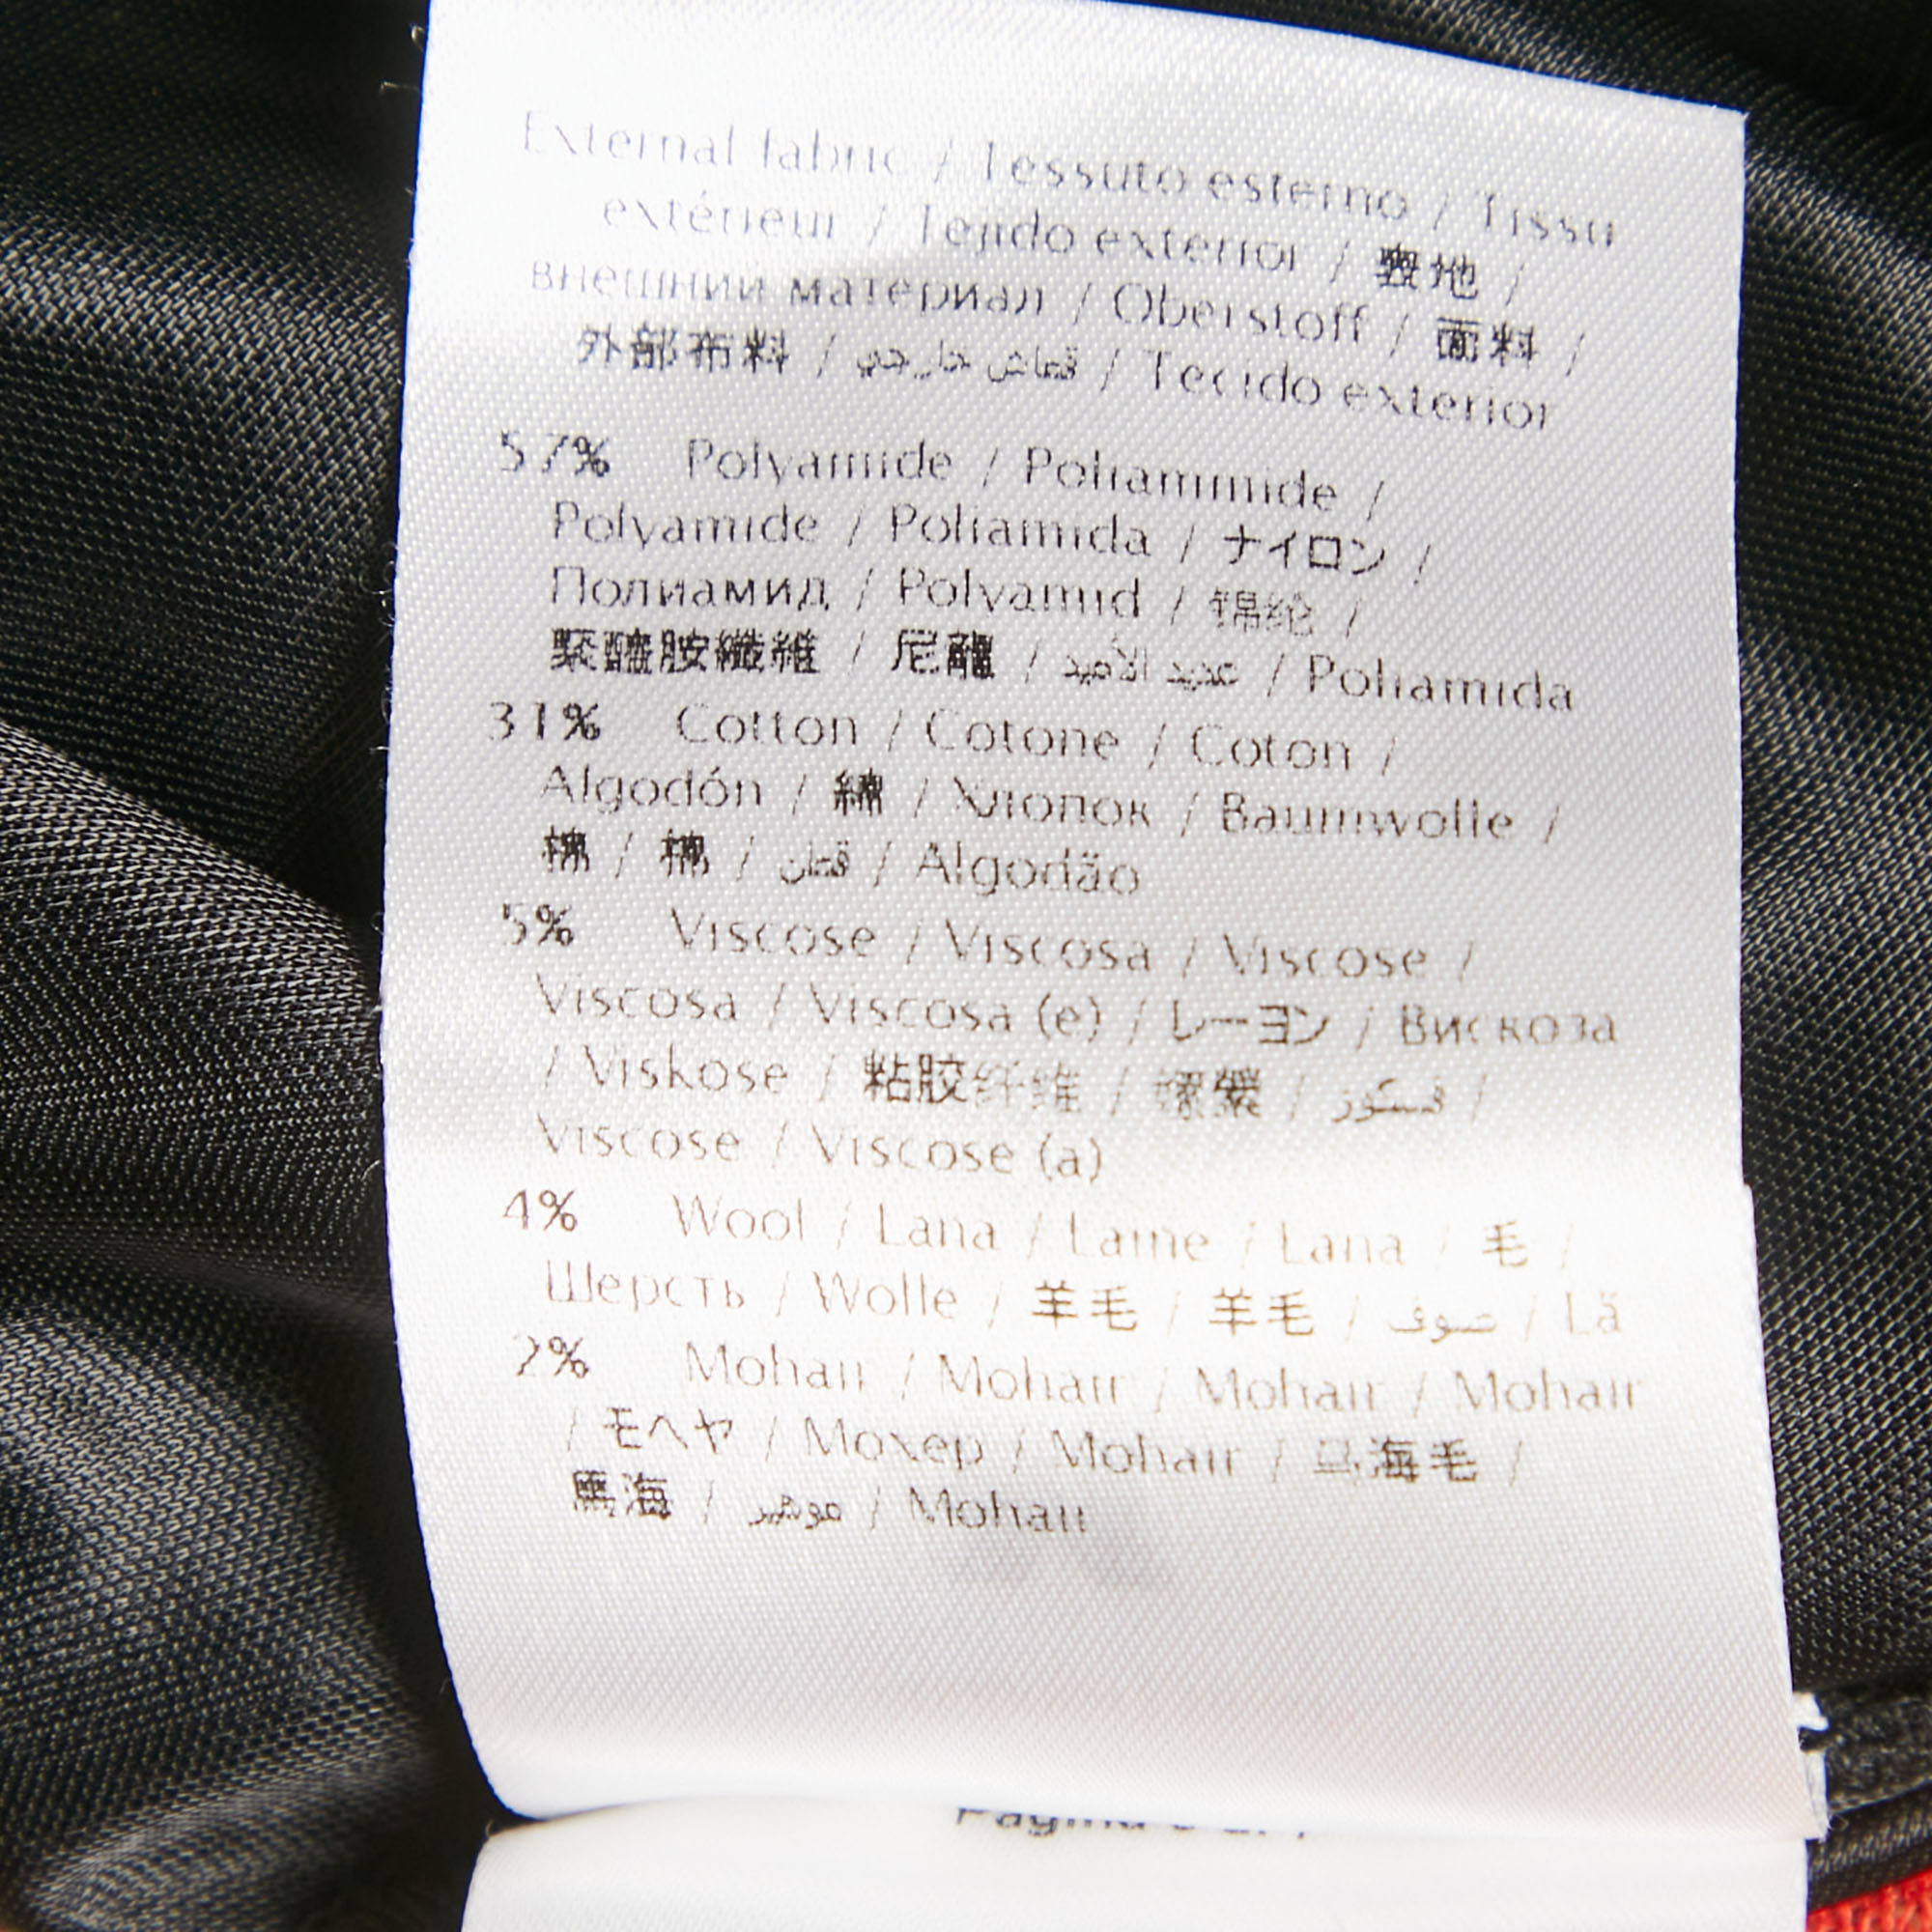 External fabric / Tessuto esterno / Tissu
extérieur / Tejido exterior / 表地 /
внешний материал / Oberstoff / 面料 /
外部布料 / قماش خارجي / Tecido exterior
57% Polyamide / Poliammide /
Polyamide / Poliamida / ナイロン /
Полиамид / Polyamid / 锦纶 /
聚醯胺纖維 / 尼龍 / عديد الأميد / Poliamida
31% Cotton / Cotone / Coton /
Algodón / 綿 / Хлопок / Baumwolle /
棉 / 棉 / قطن / Algodão
5% Viscose / Viscosa / Viscose /
Viscosa / Viscosa (e) / レーヨン / Вискоза
/ Viskose / 粘胶纤维 / 嫘縈 / فسكوز /
Viscose / Viscose (a)
4% Wool / Lana / Laine / Lana / 毛 /
Шерсть / Wolle / 羊毛 / 羊毛 / صوف / Lã
2% Mohair / Mohair / Mohair / Mohair
/ モヘヤ / Мохер / Mohair / 马海毛 /
馬海 / موهير / Mohair